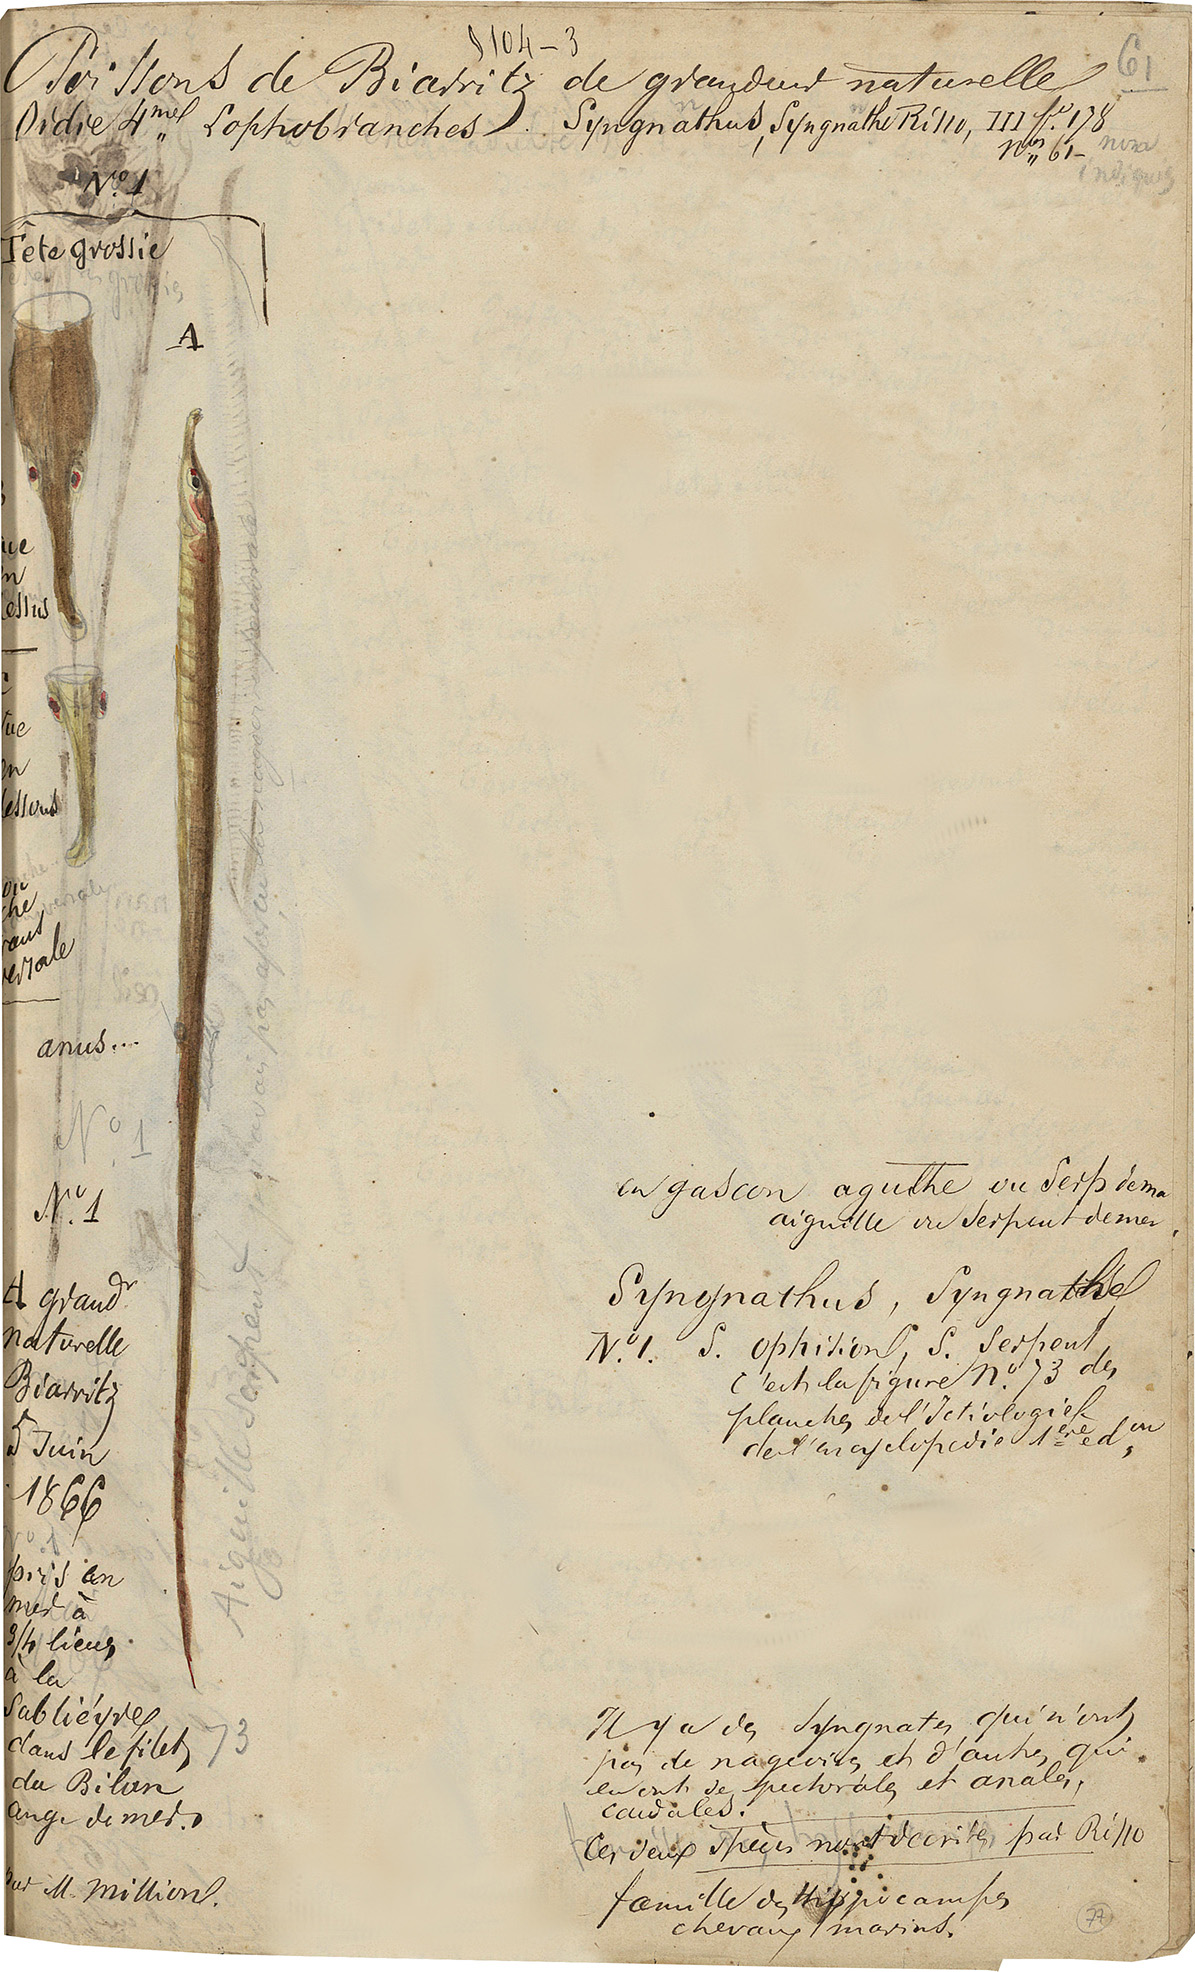 8104-3
61
Poissons de Biarritz de grandeur naturelle
Ordre 4me Lophobranches. Syngnathus, Syngnathe Risso, III f.o 178
Nos 61- non
indiqués
No. 1
Tête grossie
A
ue
en
dessus
vue
en
dessous
bouche
trans
versale
anus...
No. 1
No. 1
A grandr
naturelle
Biarritz
5 Juin
1866
pris en
mer à
3/4 lieues
à la
Sablière
dans le filet
du Bilan
ange de mer.
par M. Million.
73
Aiguille Serpent
en gascon aguthe ou Serp dema
aiguille ou Serpent de mer.
Syngnathus, Syngnathe
No. 1. S. ophidion, S. Serpent
c'est la figure No. 73 des
planches de l'Ictiologie
de l'encyclopedie 1ere edon,
Il y a des Syngnates qui n'ont
pas de nageoires et d'autres qui
en ont de pectorales et anales,
caudales.
Ces deux espèces décrites par Risso
famille des Hippocampes
chevaux marins.
77